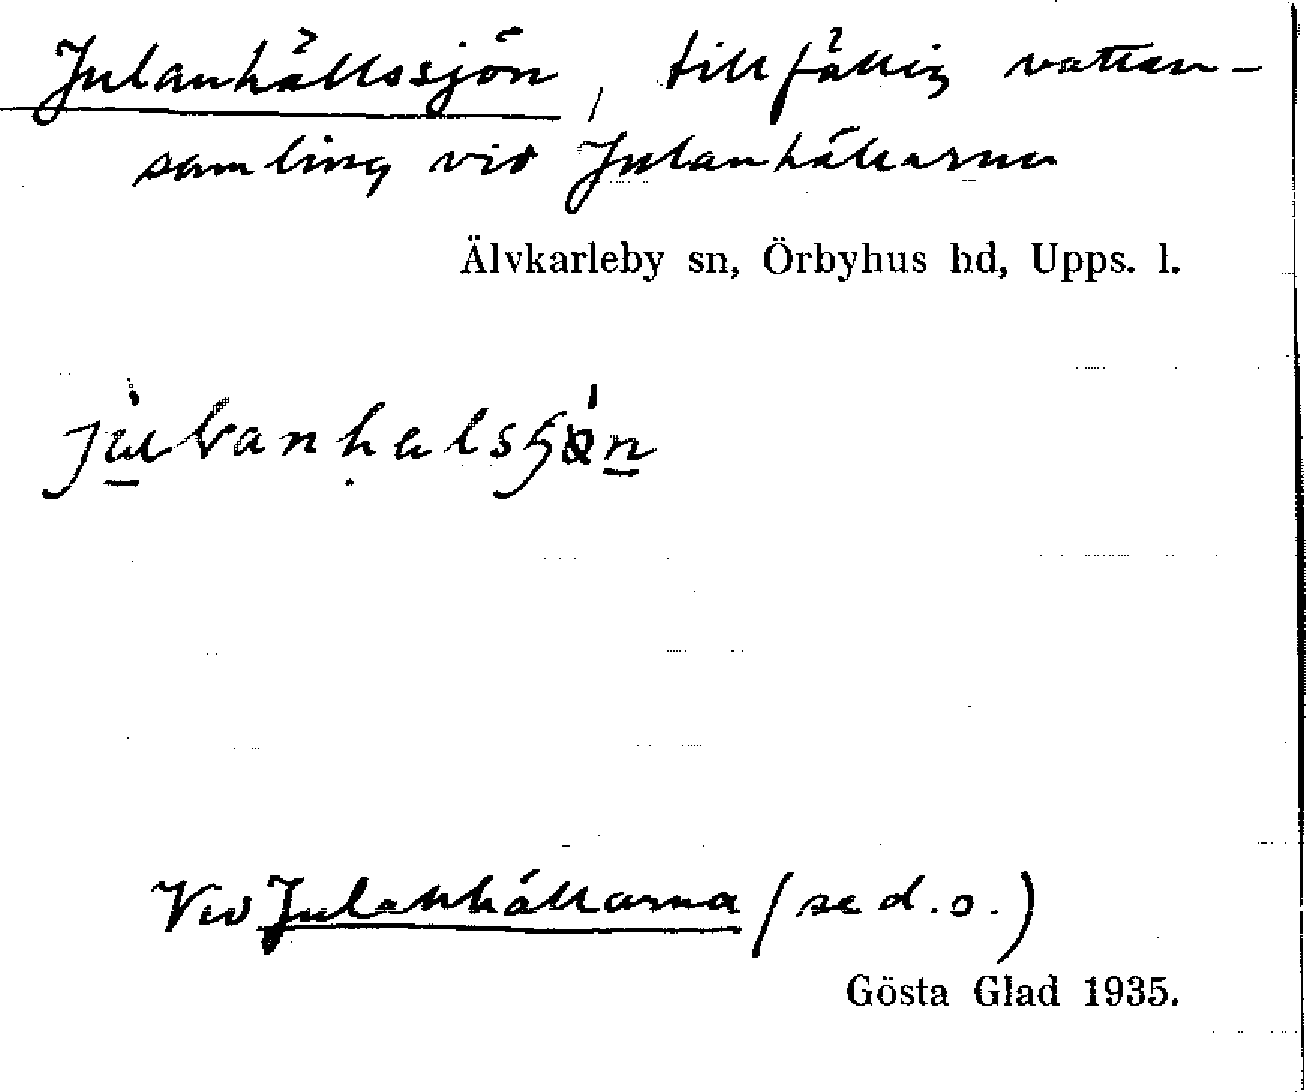 Julanhällssjön, tillfällig vatten-
samling vid Julanhällarna
Älvkarleby sn, Örbyhus hd, Upps. l.
Vid Julanhällarna (se d. o.)
Gösta Glad 1935.